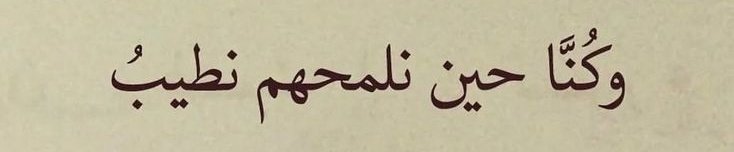 وكُنَّا حين نلمحهم نطيبُ